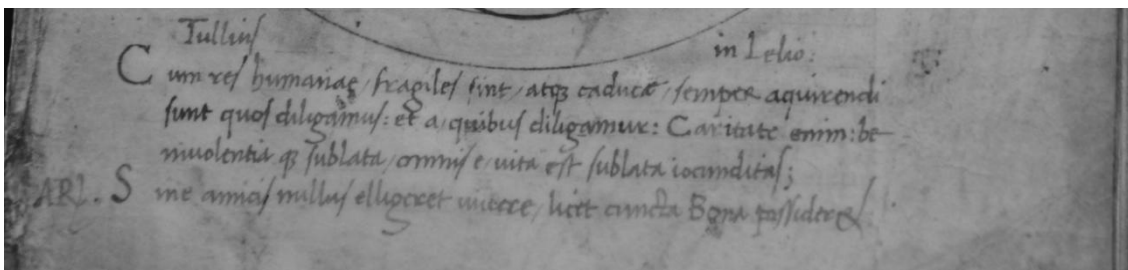 Tullius in Lelio.
Cum res humanae, fragiles sint, atq; caducae, semper aquirendi
sunt quos diligamus: et a, quibus diligamur: Caritate enim: be-
niuolentia q; sublata, omnis e, uita est sublata iocunditas;
ARI. Sine amicis nullus elligeret uiuere, licet cuncta Bona possideret